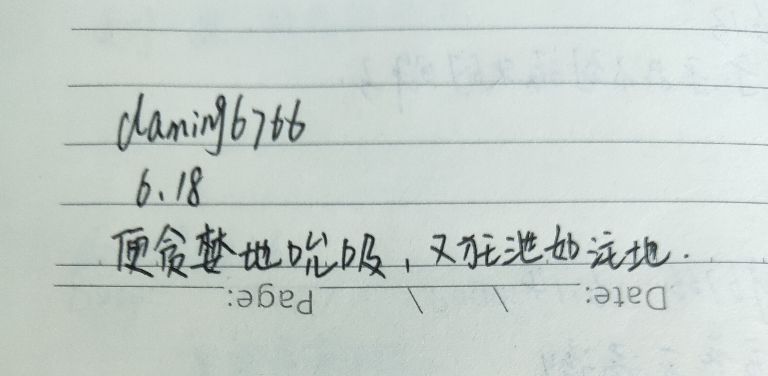 daming6766
6.18
便贪婪地吮吸，又狂泄如注地.
Date: Page: